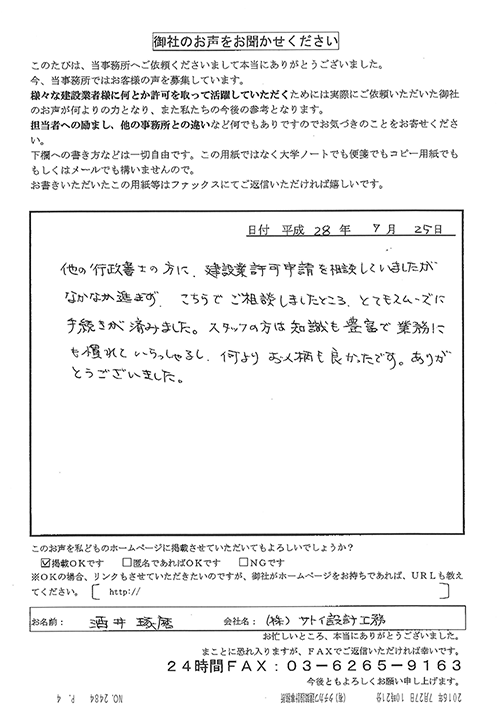 御社のお声をお聞かせください
このたびは、当事務所へご依頼くださいまして本当にありがとうございました。
今、当事務所ではお客様の声を募集しています。
様々な建設業者様に何とか許可を取って活躍していただくためには実際にご依頼いただいた御社
のお声が何よりの力となり、また私たちの今後の参考となります。
担当者への励まし、他の事務所との違いなど何でもありですのでお気づきのことをお寄せくださ
い。
下欄への書き方などは一切自由です。この用紙ではなく大学ノートでも便箋でもコピー用紙でも
もしくはメールでも構いませんので。
お書きいただいたこの用紙等はファックスにてご返信いただければ嬉しいです。
日付 平成 28 年 7 月 25 日
他の行政書士の方に、建設業許可申請を相談していましたが
なかなか進まず、こちらでご相談しましたところ、とてもスムーズに
手続きが済みました。スタッフの方は知識も豊富で業務に
も慣れていらっしゃるし、何よりお人柄も良かったです。ありが
とうございました。
このお声を私どものホームページに掲載させていただいてもよろしいでしょうか?
☑掲載OKです □匿名であればOKです □NGです
※OKの場合、リンクもさせていただきたいのですが、御社がホームページをお持ちであれば、URLも教え
てください。〔 http:// 〕
お名前: 酒井 琢磨 会社名: (株)サトイ設計工務
お忙しいところ、本当にありがとうございました。
まことに恐れ入りますが、FAXでご返信いただければ幸いです。
24時間FAX:03-6265-9163
今後ともよろしくお願い申し上げます。
2016年 7月27日 10時21分
NO. 2484 P. 4